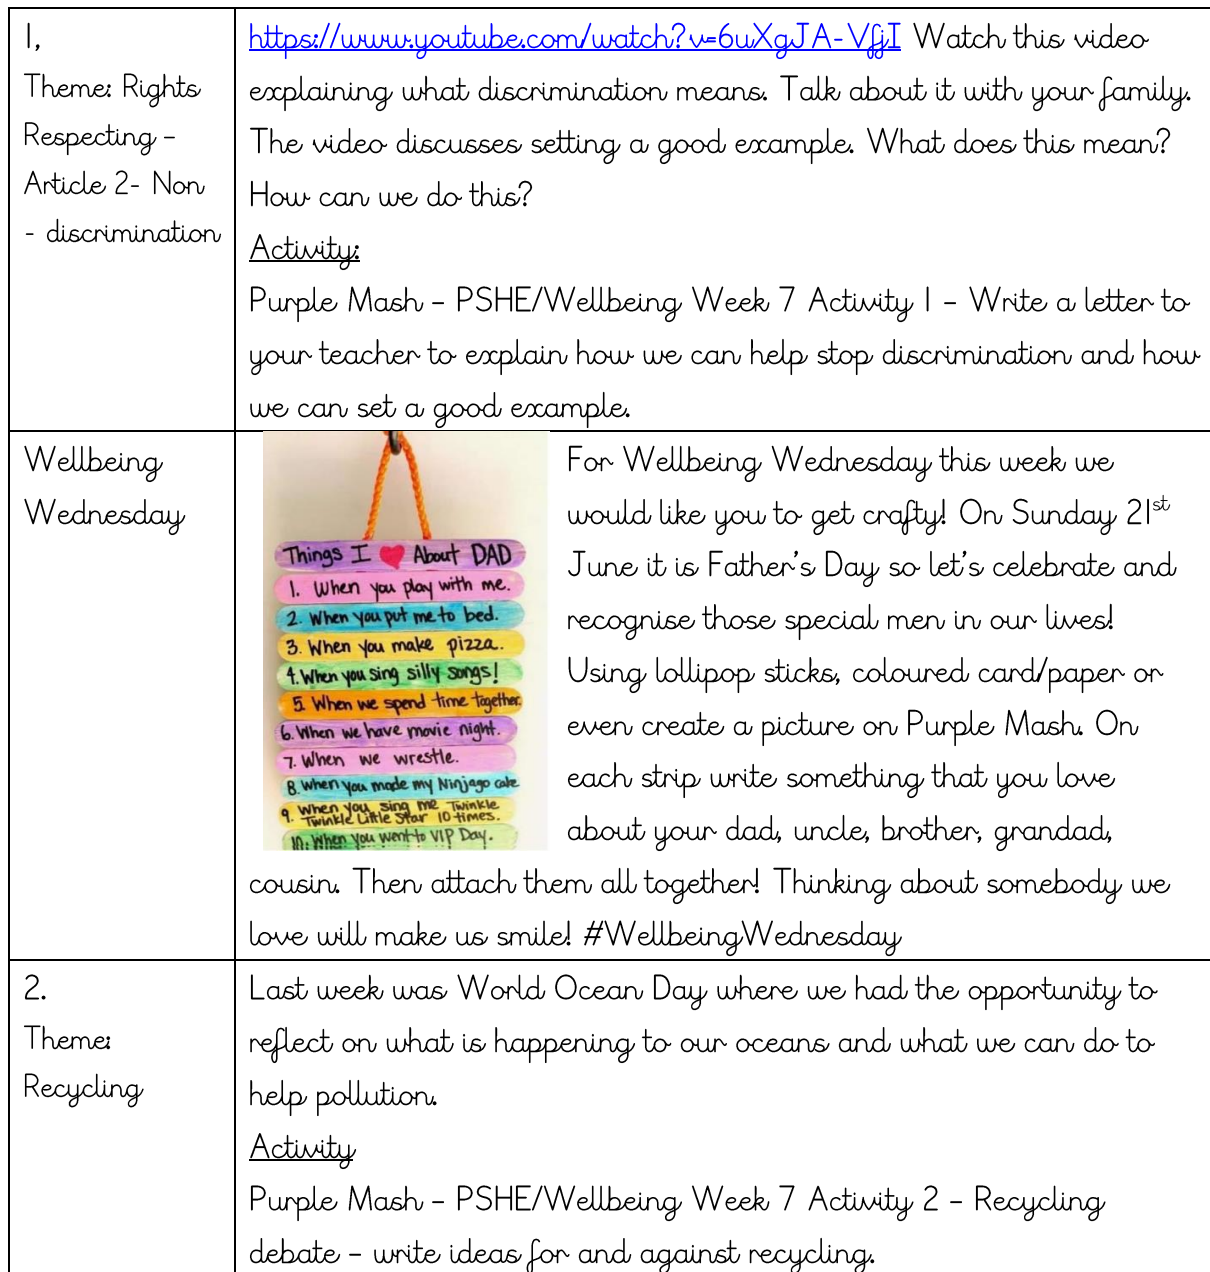 1,
Theme: Rights
Respecting –
Article 2- Non
- discrimination
https://www.youtube.com/watch?v=6uXgJA-VfjI Watch this video
explaining what discrimination means. Talk about it with your family.
The video discusses setting a good example. What does this mean?
How can we do this?
Activity:
Purple Mash – PSHE/Wellbeing Week 7 Activity 1 – Write a letter to
your teacher to explain how we can help stop discrimination and how
we can set a good example.
Wellbeing
Wednesday
Things I ❤ About DAD
1. When you play with me.
2. When you put me to bed.
3. When you make pizza.
4. When you sing silly songs!
5. When we spend time together.
6. When we have movie night.
7. When we wrestle.
8. When you made my Ninjago cake
9. When you sing me Twinkle
Twinkle Little Star 10 times.
10. When you went to VIP Day.
For Wellbeing Wednesday this week we
would like you to get crafty! On Sunday 21st
June it is Father's Day so let's celebrate and
recognise those special men in our lives!
Using lollipop sticks, coloured card/paper or
even create a picture on Purple Mash. On
each strip write something that you love
about your dad, uncle, brother, grandad,
cousin. Then attach them all together! Thinking about somebody we
love will make us smile! #WellbeingWednesday
2.
Theme:
Recycling
Last week was World Ocean Day where we had the opportunity to
reflect on what is happening to our oceans and what we can do to
help pollution.
Activity
Purple Mash – PSHE/Wellbeing Week 7 Activity 2 – Recycling
debate – write ideas for and against recycling.